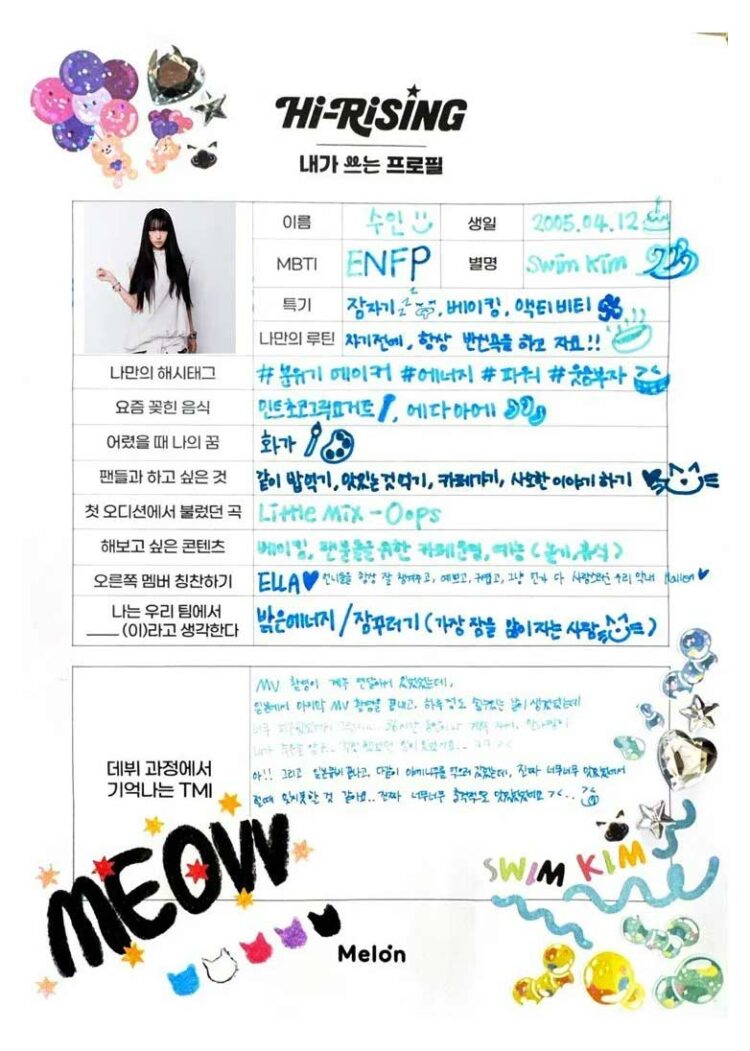 Hi-RiSING
내가 쓰는 프로필
이름 수인 생일 2005.04.12
MBTI ENFP 별명 Swim Kim
특기 잠자기 z z, 베이킹, 액티비티
나만의 루틴 자기전에, 항상 반신욕을 하고 자요!!
나만의 해시태그 #분위기 메이커 #에너지 #파워 #웃음부자 ><
요즘 꽂힌 음식 민트초코그릭요거트, 에다마메
어렸을 때 나의 꿈 화가
팬들과 하고 싶은 것 같이 밥먹기, 맛있는것 먹기, 카페가기, 사소한 이야기 하기
첫 오디션에서 불렀던 곡 Little Mix - Oops
해보고 싶은 콘텐츠 베이킹, 팬분들을 위한 카페운영, 예능 (놀기, 음식)
오른쪽 멤버 칭찬하기 ELLA♥ 언니들을 항상 잘 챙겨주고, 예쁘고, 귀엽고, 그냥 다 사랑스러운 우리 막내
나는 우리 팀에서
____ (이)라고 생각한다 밝은에너지 / 잠꾸러기 (가장 잠을 많이 자는 사람)
데뷔 과정에서
기억나는 TMI
MV 촬영이 계속 연달아서 있었는데,
일본에서 마지막 MV 촬영을 끝내고, 하루 정도 쉴수있는 날이 생겼었는데
너무
아!! 그리고 일본 끝나고, 다같이 먹으러 갔었는데, 진짜 너무너무 맛있었어서
못할 것 같아요.. 진짜 너무너무 충격적으로 맛있었어요 ><..
MEOW
SWIM KIM
Melon